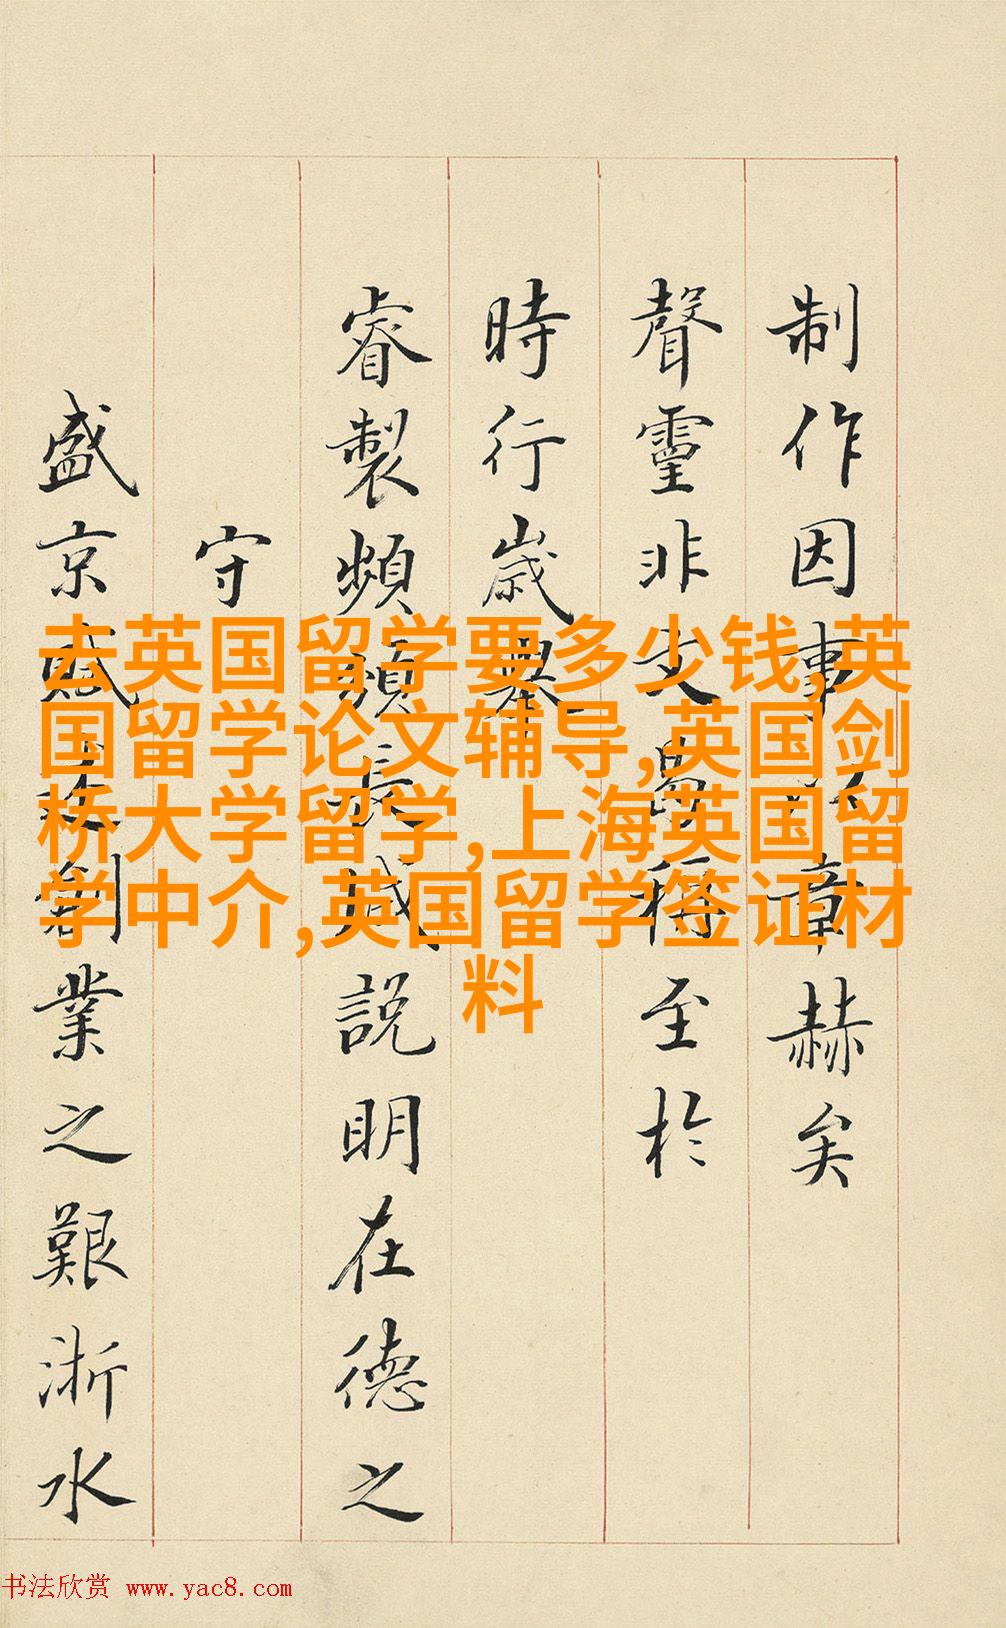 制作因事以章赫矣
聲靈非文曷稱至於
時行歲舉
睿製頻頒長城說明在德之
守
盛京賦創業之艱浙水
去英国留学要多少钱,英
国留学论文辅导,英国剑
桥大学留学,上海英国留
学中介,英国留学签证材
料
书法欣赏 www.yac8.com